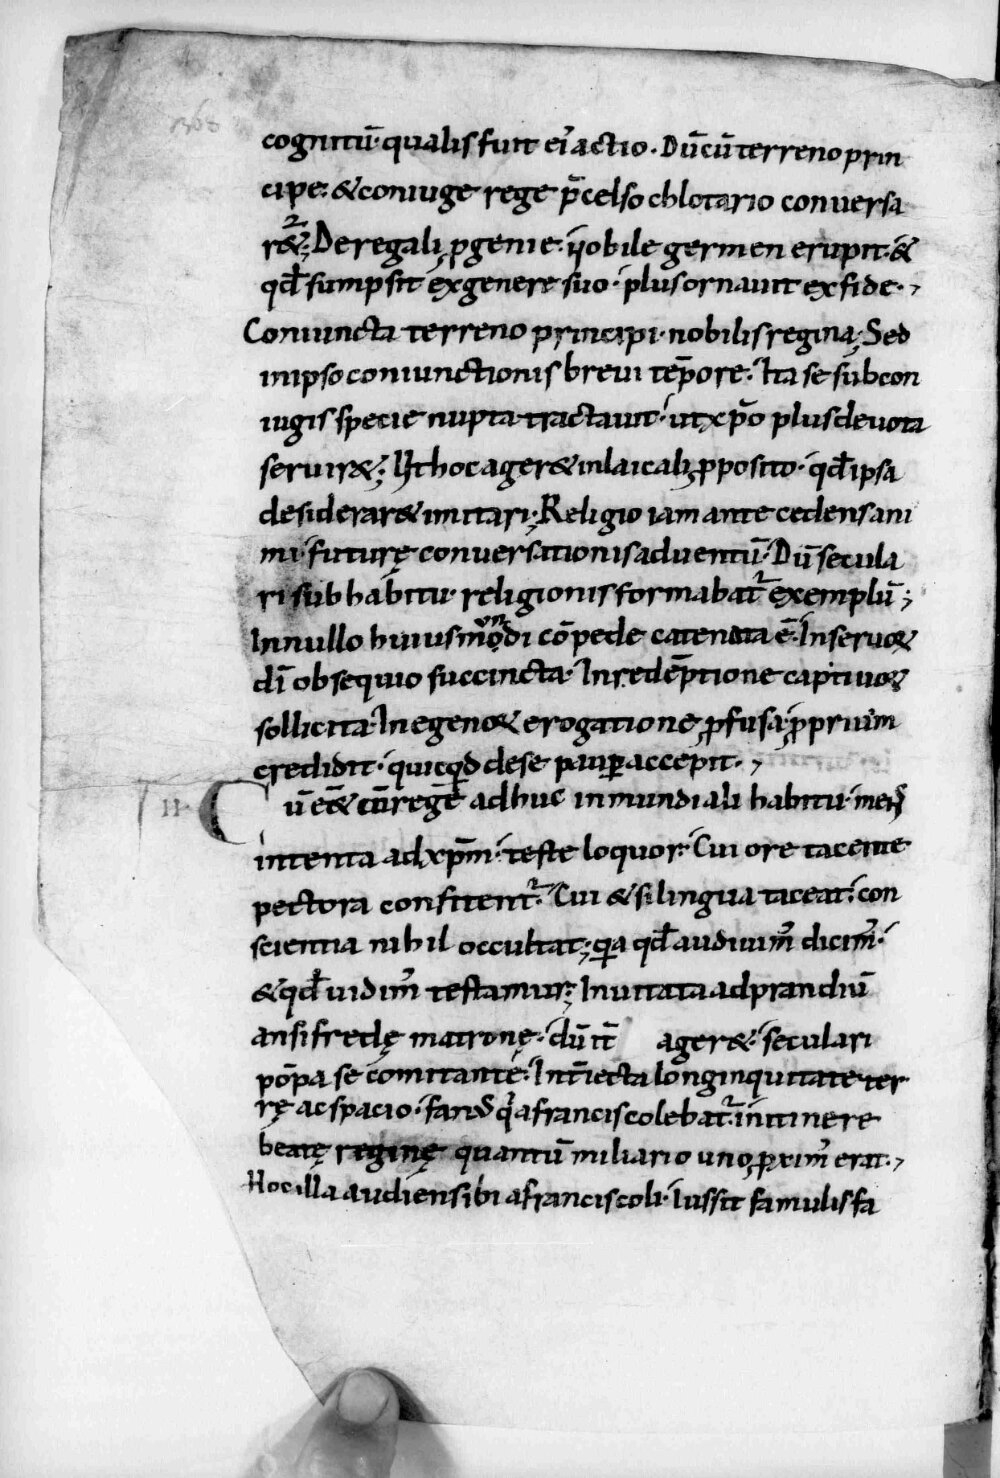 cognitū· qualis fuit ei᾽ actio. Dū cū terreno prin
cipe· & coniuge rege p̄celso chlotario conversa
r&ur; De regali ꝓgenie· nobile germen erupit· &
qđ sumpsit ex genere suo· plus ornauit ex fide·,
Coniuncta terreno principi· nobilis regina; Sed
in ipso coniunctionis breui tēpore· Ita se sub con
iugis specie nupta tractauit· ut xp̄o plus deuota
seruir&; Et hoc ager& in laicali ꝓposito· qđ ipsa
desiderar& imitari; Religio iam antecedens ani
mi· futurę conuersationis aduentū· Dū secula
ri sub habitu· religionis formabat᷑ exemplū;
In nullo huiusmodi cōpede catenata ē· In seruoꝝ
dī obsequio succincta· In redēptione captiuoꝝ
sollicita· In egenoꝝ erogatione ꝓfusa; ꝓprium
credidit· quicq̇d de se pauꝑ accepit·,
II· Cū eēt cū rege adhuc in mundiali habitu· mens
intenta ad xp̄m· teste loquor· Cui ore tacente
pectora confitent᷑· Cui & si lingua taceat· con
scientia nihil occultat; quia qđ audiuim᾽ dicim᾽·
& qđ uidim᾽ testamur; Inuitata ad prandiū
ansifredę matronę· dū it̄ ager&· seculari
pōpa se comitante· Int̄iecta longinquitate ter
rę ac spacio· fanū qđ a francis colebat᷑· in itinere
beatę reginę quantū miliario uno ꝓxim᾽ erat·,
Hoc illa audiens ibi a francis coli· iussit famulis fa